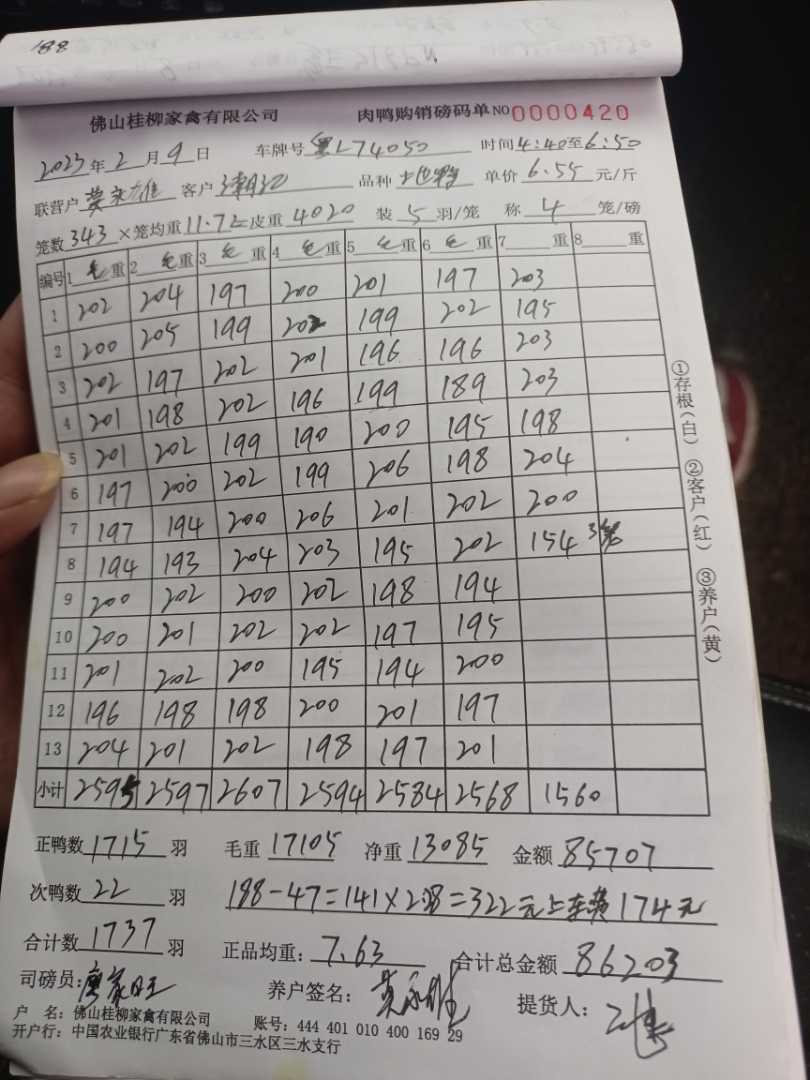 188
佛山桂柳家禽有限公司 肉鸭购销磅码单 NO 0000420
2023年2月9日 车牌号 粤L74050 时间4:40至6:50
联营户 客户 品种 单价 6.55 元/斤
笼数 343 ×笼均重 11.72 皮重 4020 装 5 羽/笼 称 4 笼/磅
编号 1 毛重 2 毛重 3 毛重 4 毛重 5 毛重 6 毛重 7 重 8 重
1 202 204 197 200 201 197 203
2 200 205 199 202 199 202 195
3 202 197 202 201 196 196 203
4 201 198 202 196 199 189 203
5 201 202 199 190 200 195 198
6 197 200 202 199 206 198 204
7 197 194 200 206 201 202 200
8 194 193 204 203 195 202 154 3笼
9 200 202 200 202 198 194
10 200 201 202 202 197 195
11 201 202 200 195 194 200
12 196 198 198 200 201 197
13 204 201 202 198 197 201
小计 2595 2597 2607 2594 2584 2568 1560
正鸭数 1715 羽 毛重 17105 净重 13085 金额 85707
次鸭数 22 羽 188-47=141× =322元上车费174元
合计数 1737 羽 正品均重: 7.63 合计总金额 86203
司磅员: 养户签名: 提货人:
户 名: 佛山桂柳家禽有限公司 账号: 444 401 010 400 169 29
开户行: 中国农业银行广东省佛山市三水区三水支行
①存根(白) ②客户(红) ③养户(黄)